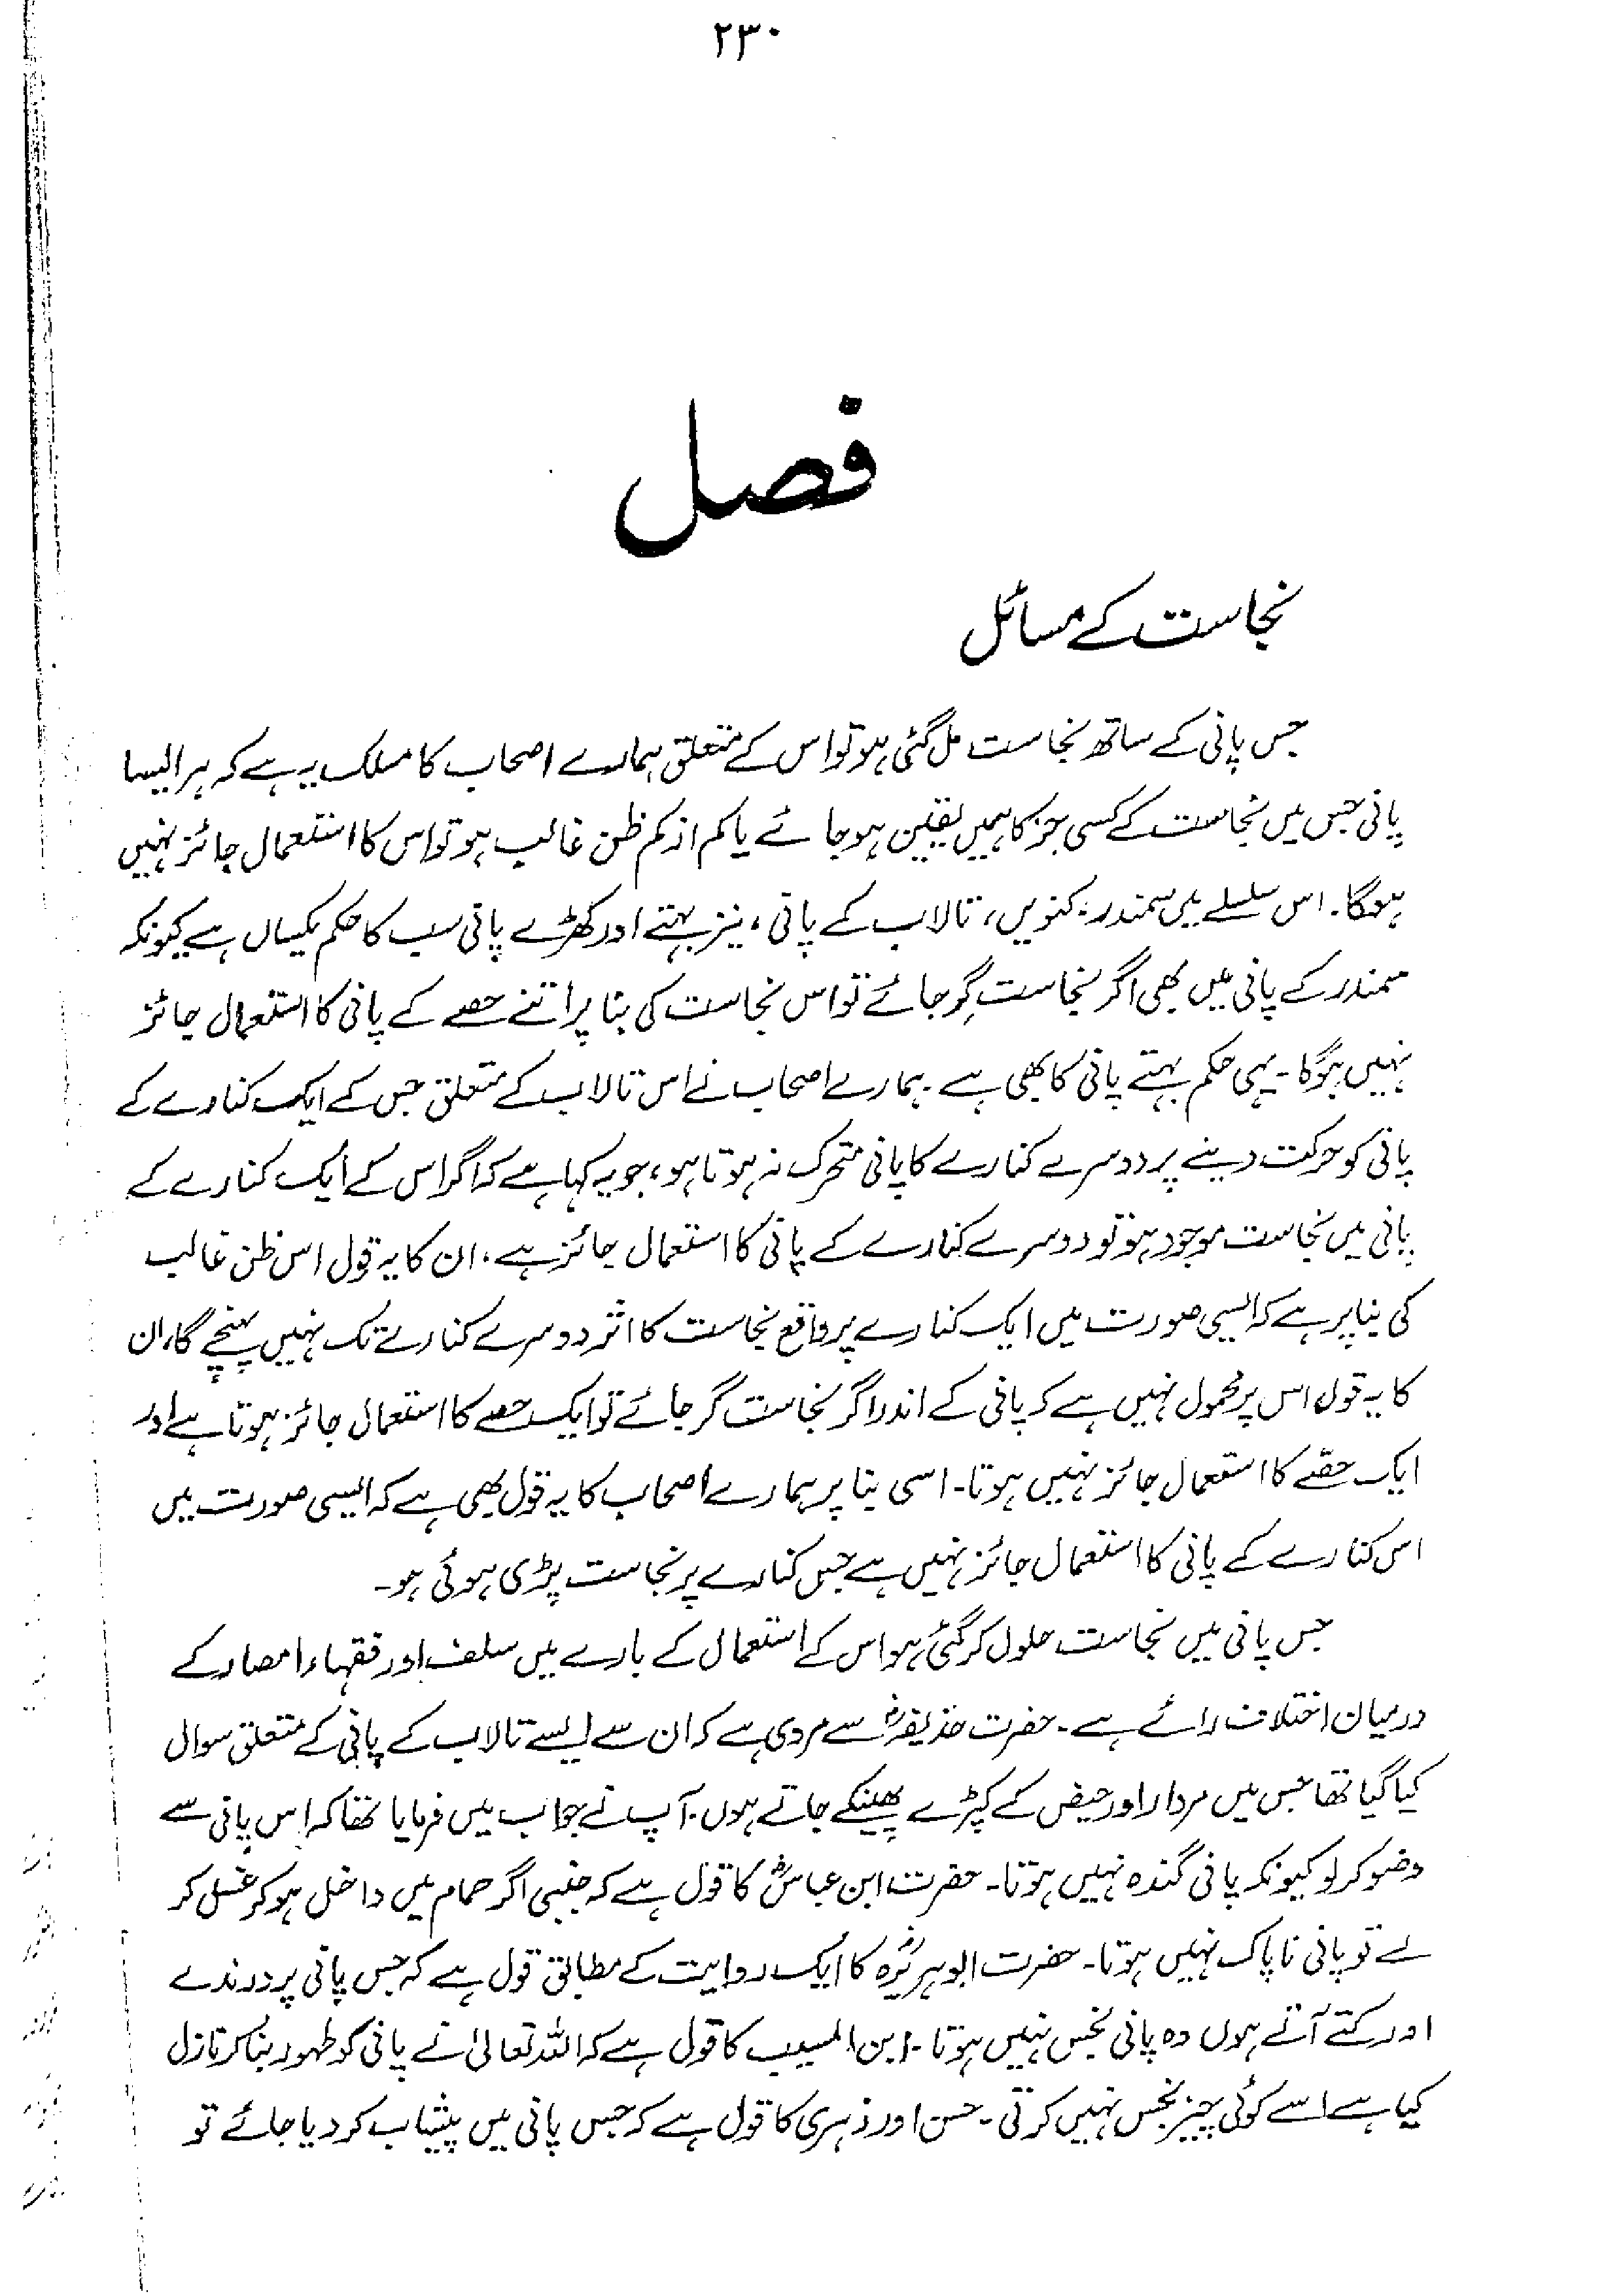 ۲۳۰
فصل
نجاست کے مسائل
جس پانی کے ساتھ نجاست مل گئی ہو تو اس کے متعلق ہمارے اصحاب کا مسلک یہ ہے کہ ہر ایسا
پانی جس میں نجاست کے کسی جز کا ہمیں یقین ہو جائے یا کم از کم ظن غالب ہو تو اس کا استعمال جائز نہیں
ہوگا۔ اس سلسلے میں سمندر، کنویں، تالاب کے پانی، نیز بہتے اور کھڑے پانی سب کا حکم یکساں ہے کیونکہ
سمندر کے پانی میں بھی اگر نجاست گر جائے تو اس نجاست کی بنا پر اتنے حصے کے پانی کا استعمال جائز
نہیں ہوگا۔ یہی حکم بہتے پانی کا بھی ہے۔ ہمارے اصحاب نے اس تالاب کے متعلق جس کے ایک کنارے کے
پانی کو حرکت دینے پر دوسرے کنارے کا پانی متحرک نہ ہوتا ہو، جو یہ کہا ہے کہ اگر اس کے ایک کنارے کے
پانی میں نجاست موجود ہو تو دوسرے کنارے کے پانی کا استعمال جائز ہے، ان کا یہ قول اس ظن غالب
کی بنا پر ہے کہ ایسی صورت میں ایک کنارے پر واقع نجاست کا اثر دوسرے کنارے تک نہیں پہنچے گا، ان
کا یہ قول اس پر محمول نہیں ہے کہ پانی کے اندر اگر نجاست گر جائے تو ایک حصے کا استعمال جائز ہوتا ہے اور
ایک حصّے کا استعمال جائز نہیں ہوتا۔ اسی بنا پر ہمارے اصحاب کا یہ قول بھی ہے کہ ایسی صورت میں
اس کنارے کے پانی کا استعمال جائز نہیں ہے جس کنارے پر نجاست پڑی ہوئی ہو۔
جس پانی میں نجاست حلول کر گئی ہو اس کے استعمال کے بارے میں سلف اور فقہاء امصار کے
درمیان اختلاف رائے ہے۔ حضرت حذیفہؓ سے مروی ہے کہ ان سے ایسے تالاب کے پانی کے متعلق سوال
کیا گیا تھا جس میں مردار اور حیض کے کپڑے پھینکے جاتے ہوں۔ آپ نے جواب میں فرمایا تھا کہ اس پانی سے
وضو کر لو کیونکہ پانی گندہ نہیں ہوتا۔ حضرت ابن عباسؓ کا قول ہے کہ جنبی اگر حمام میں داخل ہو کر غسل کر
لے تو پانی ناپاک نہیں ہوتا۔ حضرت ابوہریرہؓ کا ایک روایت کے مطابق قول ہے کہ جس پانی پر درندے
اور کتے آتے ہوں وہ پانی نجس نہیں ہوتا۔ ابن المسیب کا قول ہے کہ اللہ تعالیٰ نے پانی کو طہور بنا کر نازل
کیا ہے اسے کوئی چیز نجس نہیں کرتی۔ حسن اور زہری کا قول ہے کہ جس پانی میں پیشاب کر دیا جائے تو